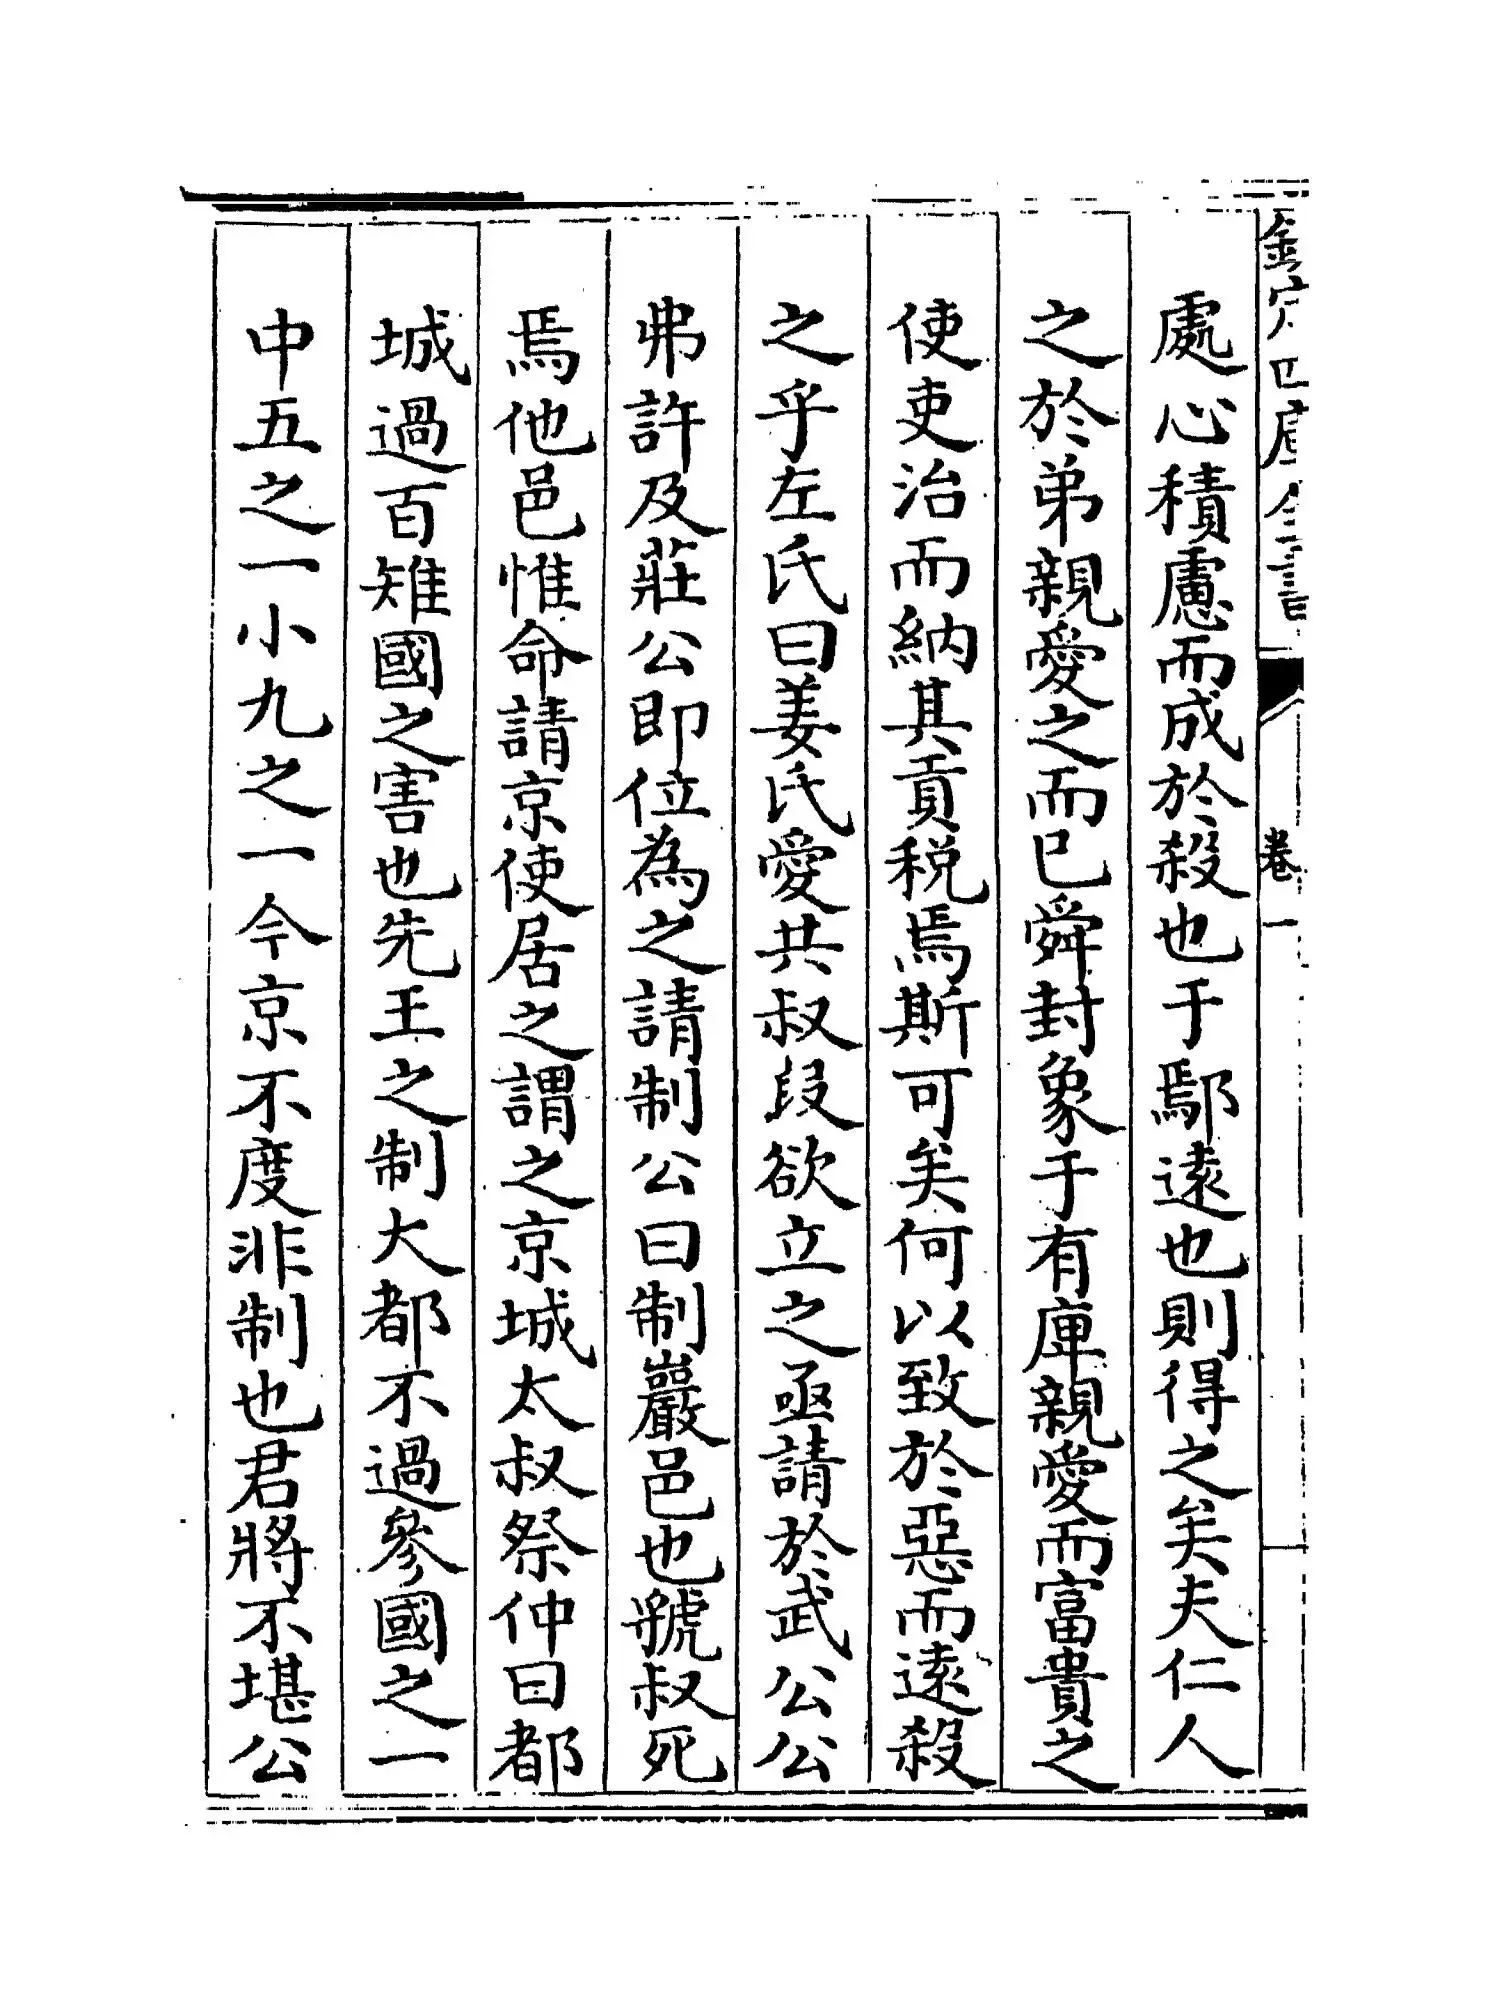 欽定四庫全書
卷一
處心積慮而成於殺也于鄢遠也則得之矣夫仁人
之於弟親愛之而已舜封象于有庳親愛而富貴之
使吏治而納其貢税焉斯可矣何以致於惡而遠殺
之乎左氏曰姜氏愛共叔段欲立之亟請於武公公
弗許及莊公即位為之請制公曰制巖邑也虢叔死
焉他邑惟命請京使居之謂之京城太叔祭仲曰都
城過百雉國之害也先王之制大都不過參國之一
中五之一小九之一今京不度非制也君將不堪公